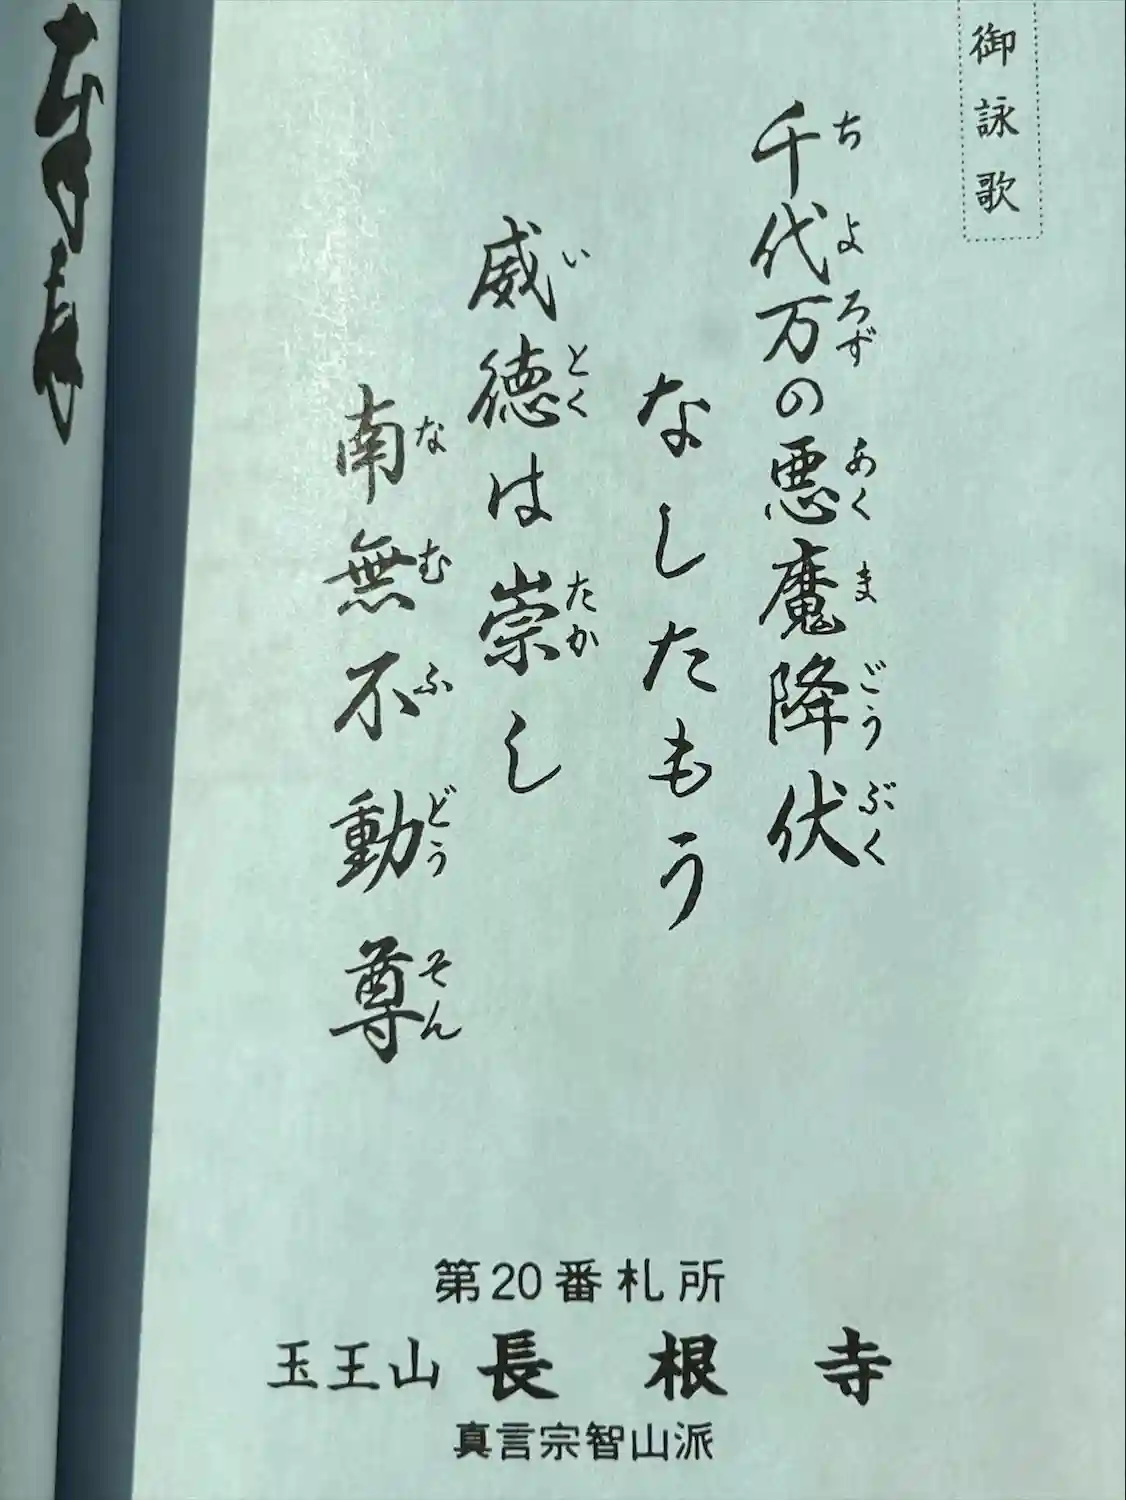 御詠歌
千代万の悪魔降伏
ちよろずあくまごうぶく
なしたもう
威徳は崇し
いとくたか
南無不動尊
なむふどうそん
第20番札所
玉王山 長根寺
真言宗智山派
奉